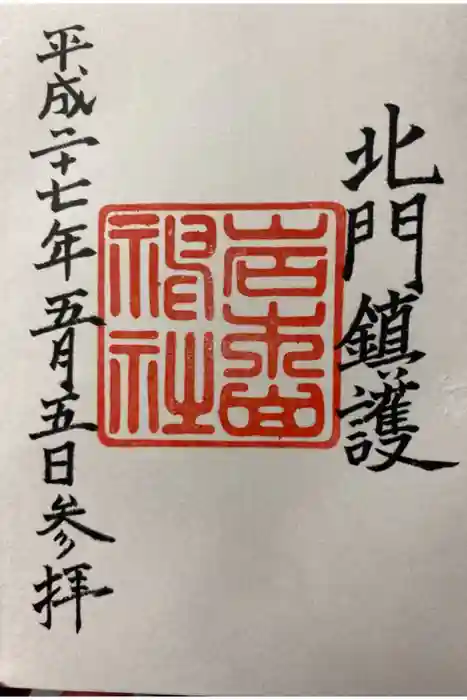 北門鎮護
岩木山
神社
平成二十七年五月五日参拝